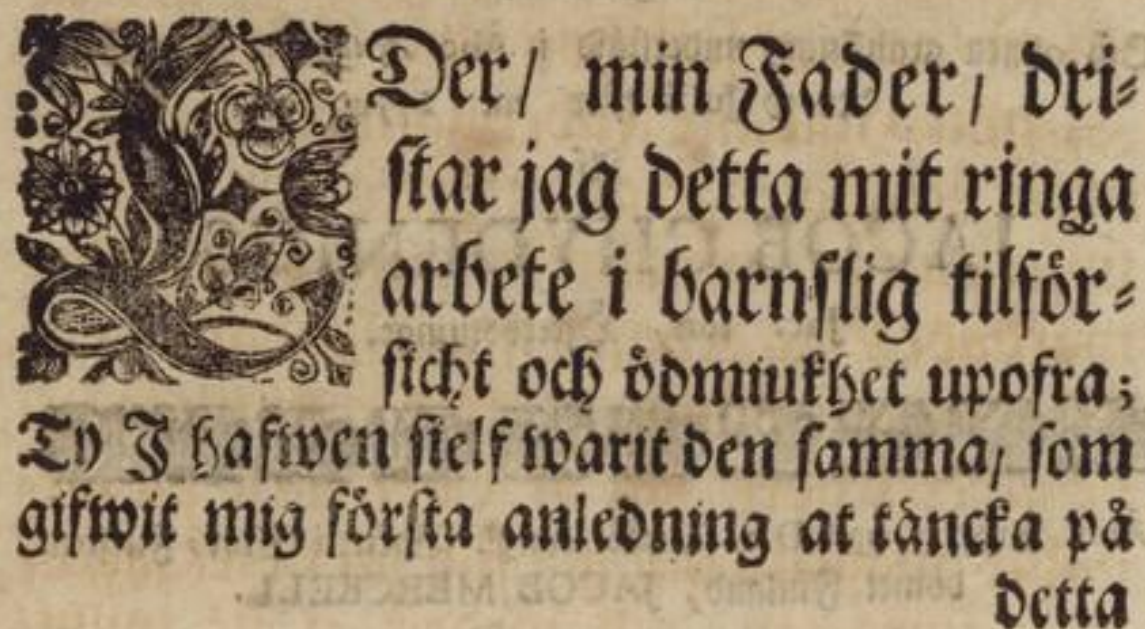 EDer/ min Fader/ dri⸗
ſtar jag detta mit ringa
arbete i barnſlig tilför⸗
ſicht och ödmiukhet upofra;
Ty J hafwen ſielf warit den ſamma/ ſom
gifwit mig förſta anledning at täncka på
detta